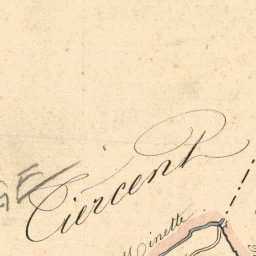 GE
Tiercent
Minette